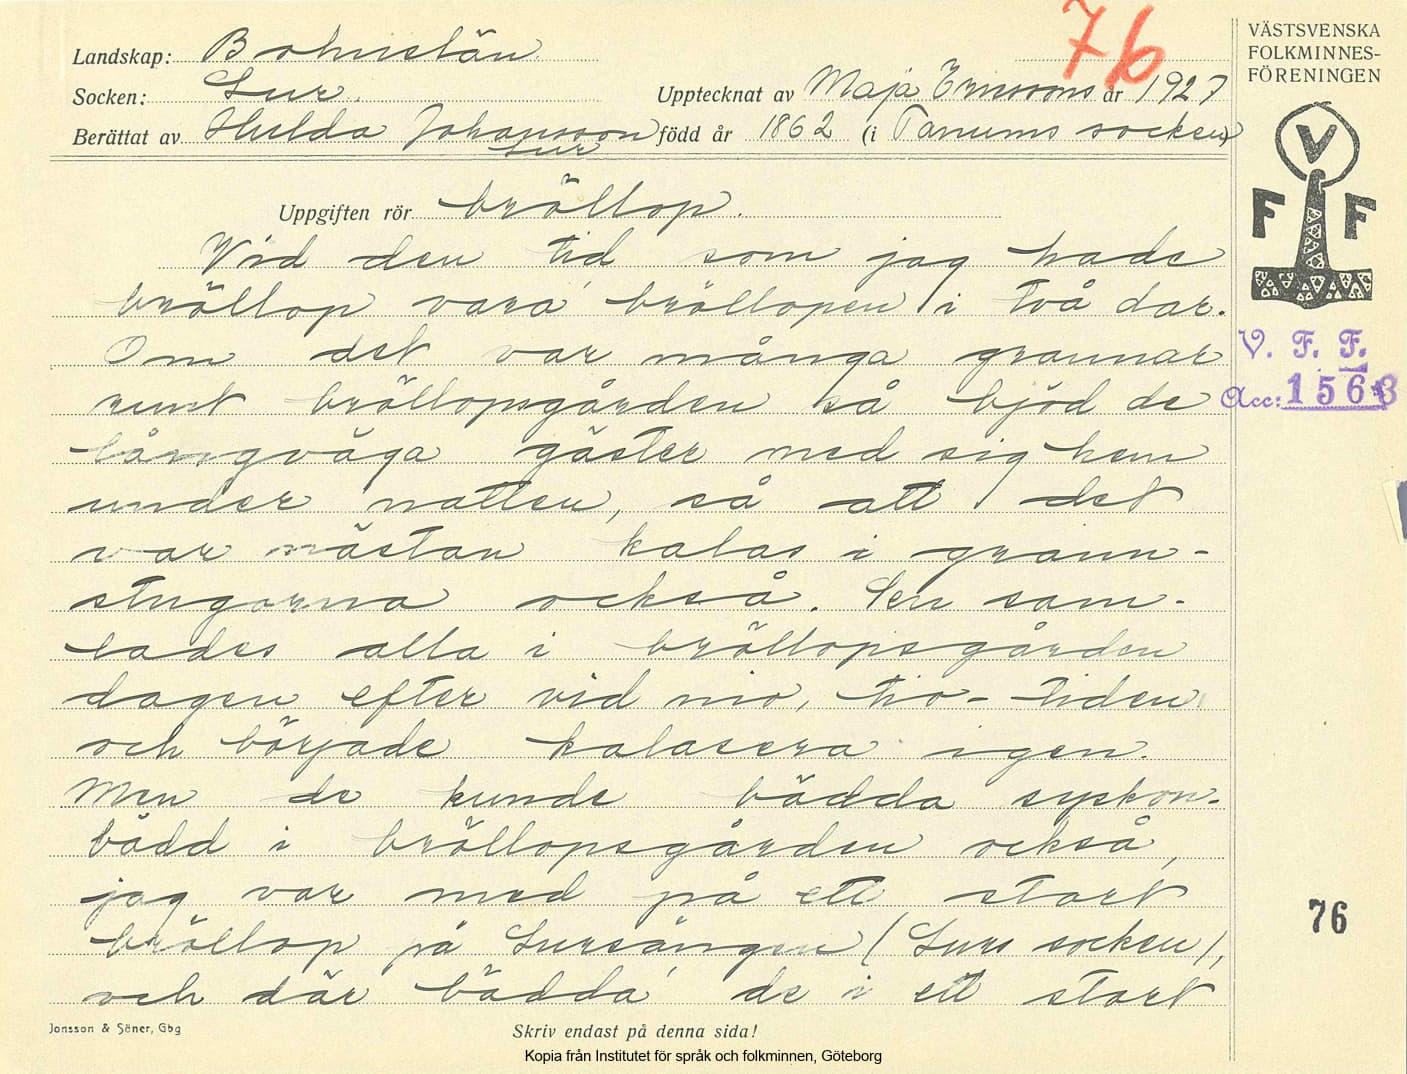 76
Landskap: Bohuslän.
Socken: Lur.
Upptecknat av Maja Ericsons år 1927
Berättat av Hulda Johansson född år 1862 (i Tanums socken)
Lur
VÄSTSVENSKA
FOLKMINNES-
FÖRENINGEN
V
F F
V. F. F.
Acc: 1563
Uppgiften rör bröllop.
Vid den tid som jag hade
bröllop vara' bröllopen i två dar.
Om det var många grannar
runt bröllopsgården så bjöd de
långväga gäster med sig hem
under natten, så att det
var nästan kalas i grann-
stugorna också. Sen sam-
lades alla i bröllopsgården
dagen efter vid nio, tio-tiden
och började kalasera igen.
Men de kunde bädda syskon-
bädd i bröllopsgården också,
jag var med på ett stort
bröllop på Lursängen (Lurs socken),
och där bädda' de i ett stort
76
Jonsson & Söner, Gbg
Skriv endast på denna sida!
Kopia från Institutet för språk och folkminnen, Göteborg